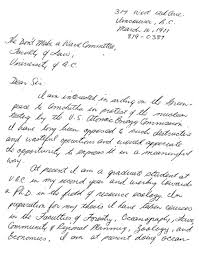 Vancouver, B.C.
March 16, 1971
The Don't Make a Wave Committee,
Faculty of Law,
University of B.C.
Dear Sir:
I am interested in sailing on the Green-
peace to Amchitka in protest of the nuclear
testing by the U.S. Atomic Energy Commission.
I have long been opposed to such destructive
and wasteful operations and would appreciate
the opportunity to express it in a meaningful
way.
At present I am a graduate student at
U.B.C. in my second year and working towards
a Ph.D. in the field of resource ecology. In
preparation for my thesis I have taken courses
in the Faculties of Forestry, Oceanography,
Community & Regional Planning, Zoology, and
Economics. I am at present doing